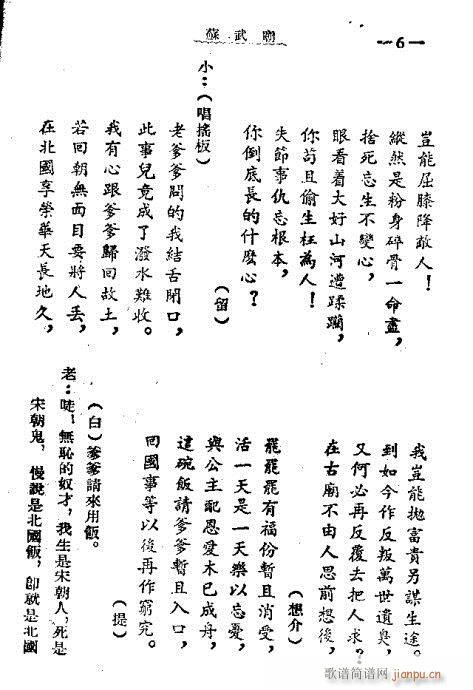 蘇武廟
—6—
豈能屈膝降敵人!
縱然是粉身碎骨一命盡,
捨死忘生不變心,
眼看着大好山河遭蹂躪,
你苟且偷生枉為人!
失節事仇忘根本,
你倒底長的什麽心?
(留)
小:(唱搖板)
老爹爹問的我結舌閉口,
此事兒竟成了潑水難收。
我有心跟爹爹歸回故土,
若回朝無面目要將人丟,
在北國享榮華天長地久,
我豈能拋富貴另謀生途。
到如今作反叛萬世遺臭,
又何必再反覆去把人求?
在古廟不由人思前想後,
(想介)
罷罷罷有福份暫且消受,
活一天是一天樂以忘憂,
與公主配恩愛木已成舟,
這碗飯請爹爹暫且入口,
回國事等以後再作窮究。
(提)
(白)爹爹請來用飯。
老:唗!無恥的奴才,我生是宋朝人,死是
宋朝鬼,慢說是北國飯,卽就是北國
歌谱简谱网
jianpu.cn